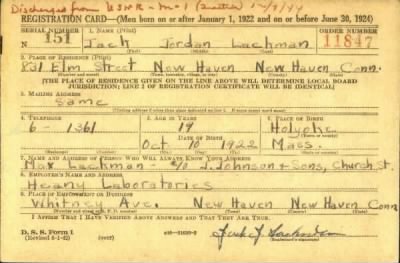 Discharged from USNR - M-1 12/7/44
REGISTRATION CARD—(Men born on or after January 1, 1922 and on or before June 30, 1924)
SERIAL NUMBER 1. NAME (Print) ORDER NUMBER
N 151 Jack Jordan Lachman 11847
2. PLACE OF RESIDENCE (Print)
831 Elm Street New Haven New Haven Conn.
(Number and street) (Town, township, village, or city) (County) (State)
[THE PLACE OF RESIDENCE GIVEN ON THE LINE ABOVE WILL DETERMINE LOCAL BOARD
JURISDICTION; LINE 2 OF REGISTRATION CERTIFICATE WILL BE IDENTICAL]
3. MAILING ADDRESS
Same
4. TELEPHONE 5. AGE IN YEARS 6. PLACE OF BIRTH
6 - 1361 19 Holyoke
DATE OF BIRTH (Town or county)
Oct 10 1922 Mass.
(Mo.) (Day) (Yr.) (State or country)
7. NAME AND ADDRESS OF PERSON WHO WILL ALWAYS KNOW YOUR ADDRESS
Max Lachman - c/o J. Johnson + Sons, Church St.
8. EMPLOYER'S NAME AND ADDRESS
Heany Laboratories
9. PLACE OF EMPLOYMENT OR BUSINESS
Whitney Ave. New Haven New Haven Conn
(Number and street or R. F. D. number) (Town) (County) (State)
I AFFIRM THAT I HAVE VERIFIED ABOVE ANSWERS AND THAT THEY ARE TRUE.
D. S. S. Form 1
(Revised 6-1-42) (over) Jack J Lachman
(Registrant's signature)